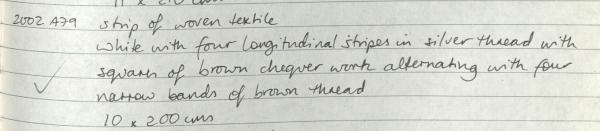 2002.479 strip of woven textile
white with four longitudinal stripes in silver thread with
squares of brown chequer work alternating with four
narrow bands of brown thread
10 x 200 cms